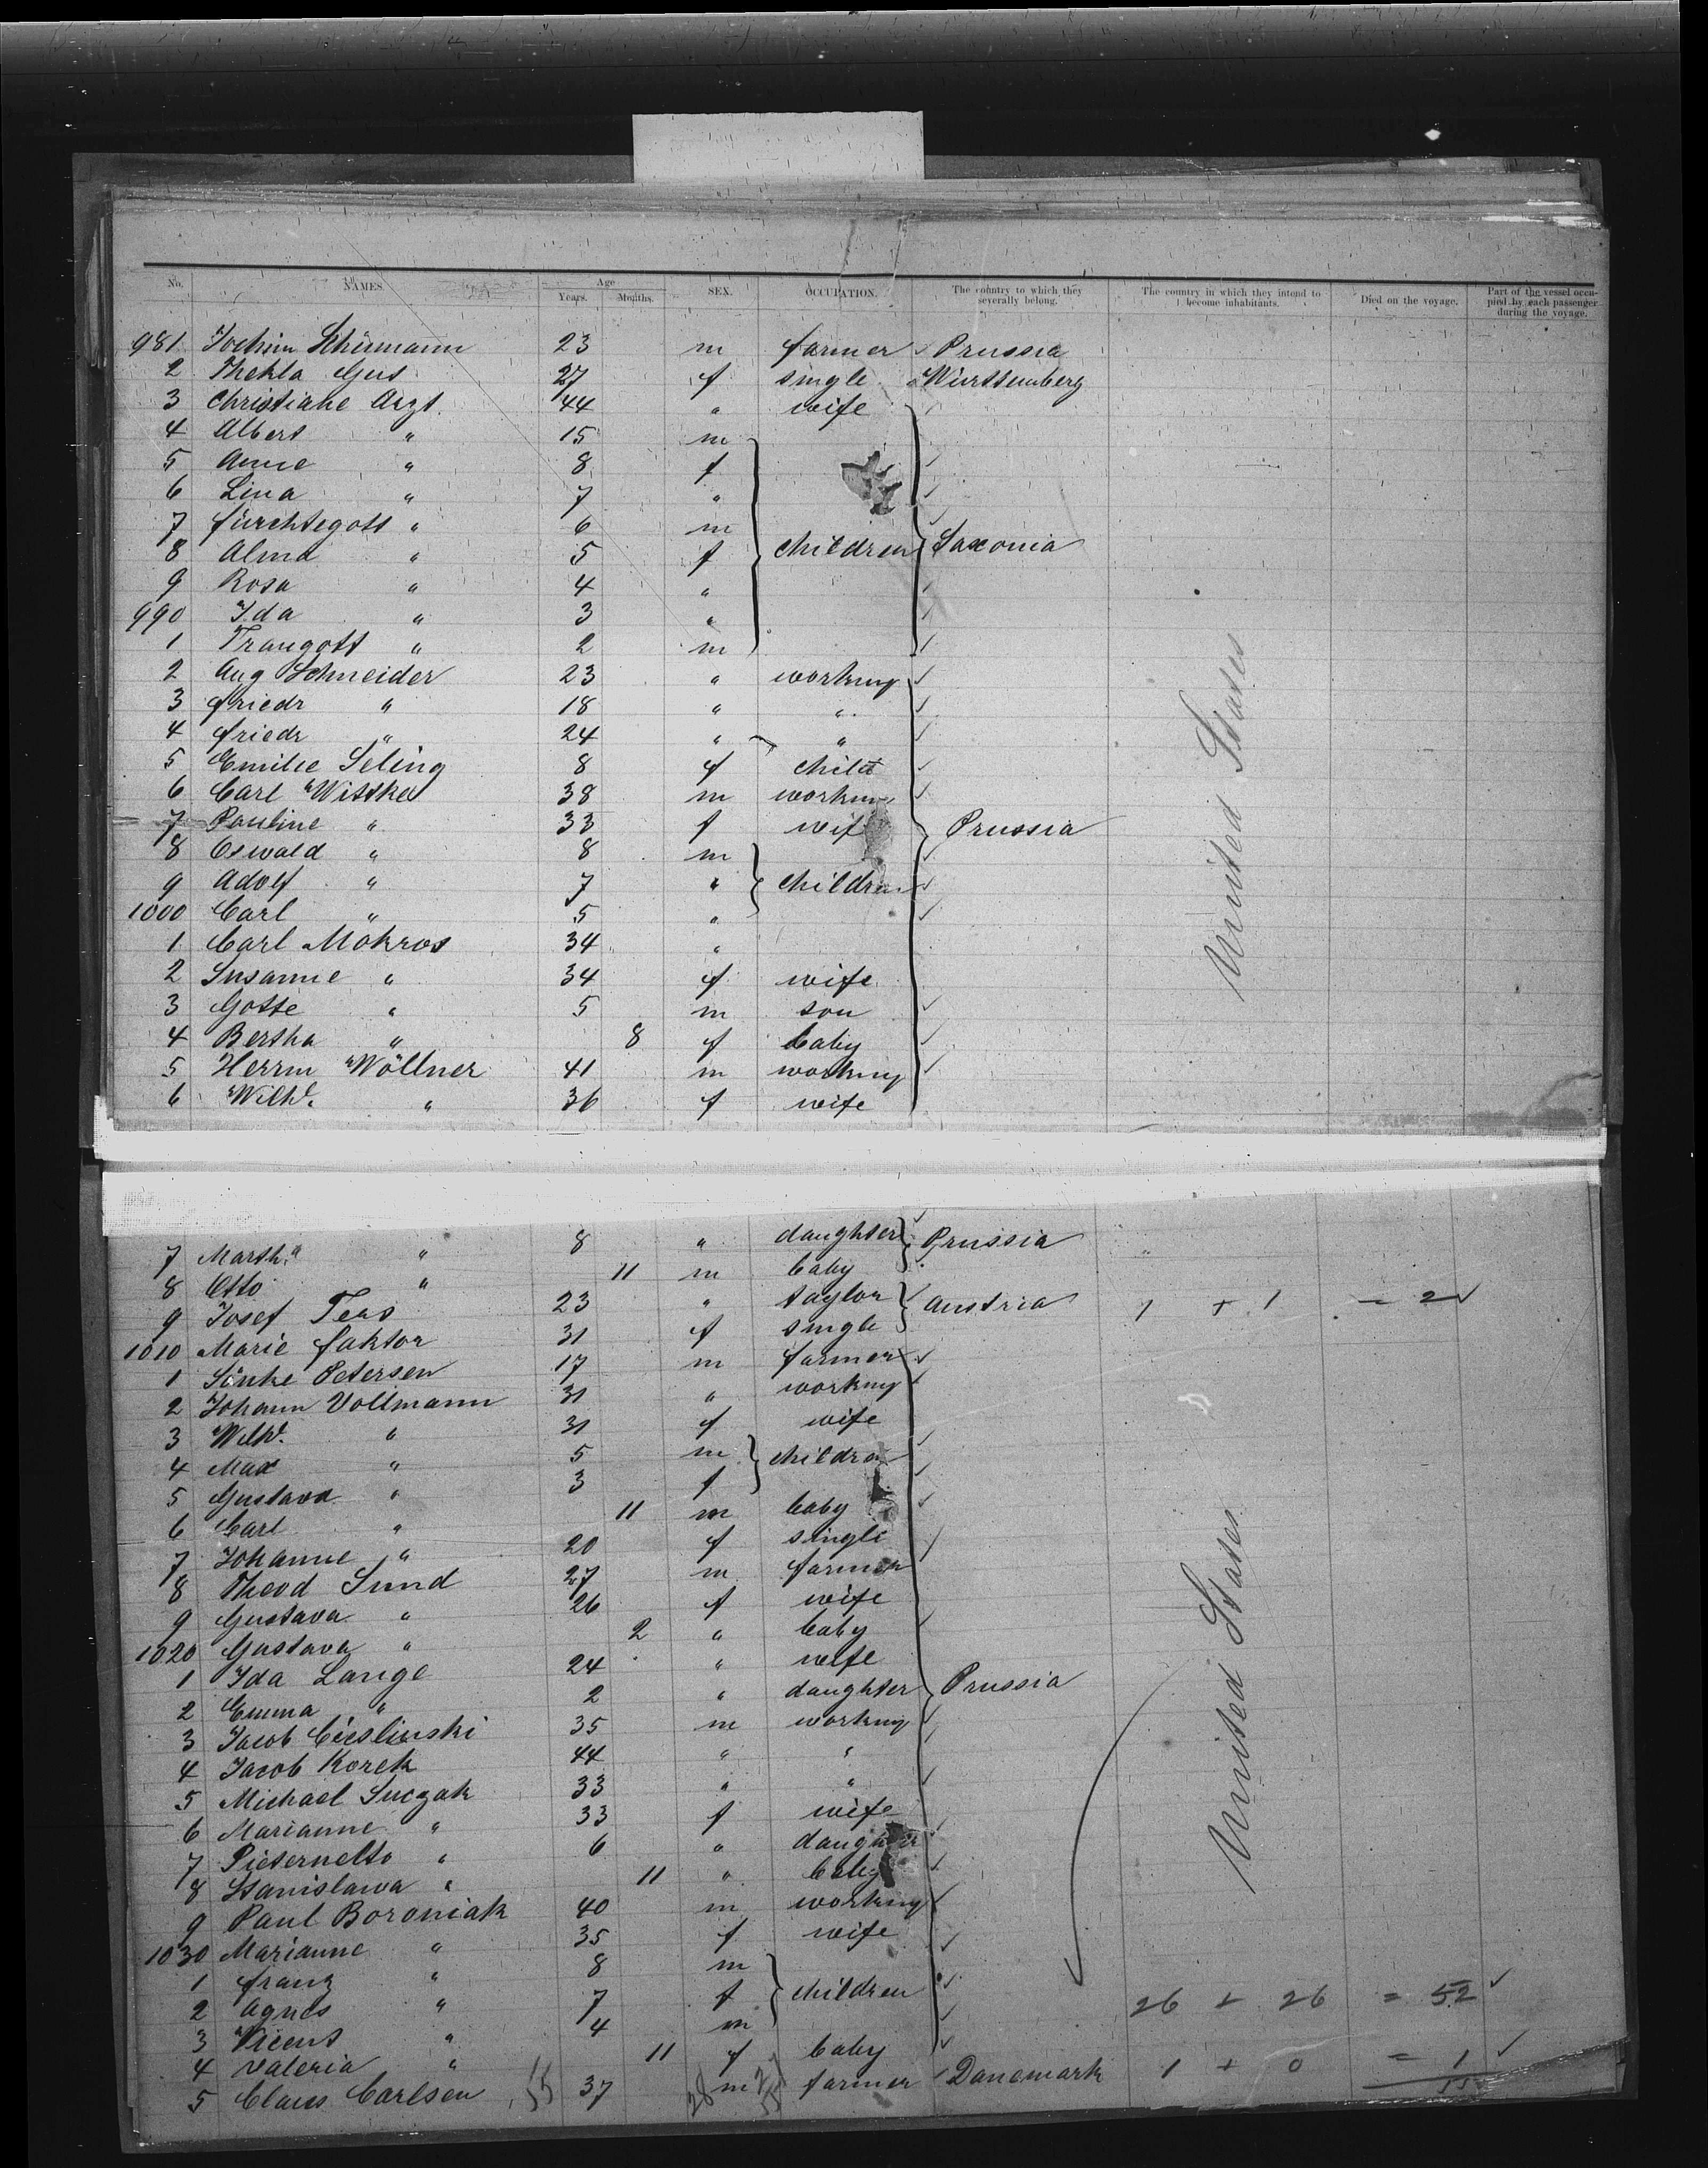 No. NAMES. Age Years. Months. SEX. OCCUPATION. The country to which they severally belong. The country in which they intend to become inhabitants. Died on the voyage. Part of the vessel occupied by each passenger during the voyage.
981 Jochim Schürmann 23 m farmer Prussia
2 Thekla Gus 27 f single Württemberg
3 Christiane Arzt 44 " wife
4 Albert " 15 m
5 Anne " 8 f
6 Lina " 7 "
7 fürchtegott " 6 m
8 Alma " 5 f children Saxonia
9 Rosa " 4 "
990 Ida " 3 "
1 Traugott " 2 m
2 Aug Schneider 23 " working
3 friedr " 18 " "
4 friedr " 24 " "
5 Emilie Seling 8 f child
6 Carl Wittke 38 m working
7 Pauline " 33 f wife Prussia
8 Oswald " 8 m
9 Adolf " 7 " children
1000 Carl " 5 "
1 Carl Mokros 34 "
2 Susanne " 34 f wife
3 Gotte " 5 m son
4 Bertha " 8 f baby
5 Herrm Wöllner 41 m working
6 Wilh. " 36 f wife
United States
7 Martha " 8 " daughter Prussia "
8 Otto " 11 m baby
9 Josef Ters 23 " taylor Austria 1 + 1 = 2
1010 Marie faktor 31 f single
1 Sönke Petersen 17 m farmer
2 Johann Vollmann 31 " working
3 Wilh. " 31 f wife
4 Max " 5 m children
5 Gustava " 3 f
6 Carl " 11 m baby
7 Johanne " 20 f single
8 Theod Sund 27 m farmer
9 Gustava " 26 f wife
1020 Gustava " 2 " baby
1 Ida Lange 24 " wife
2 Emma " 2 " daughter Prussia
3 Jacob Cieslinski 35 m working
4 Jacob Korek 44 " "
5 Michael Suczak 33 " "
6 Marianne " 33 f wife
7 Pieternella " 6 " daughter
8 Stanislawa " 11 " baby
9 Paul Boroniak 40 m working
1030 Marianne " 35 f wife
1 franz " 8 m
2 Agnes " 7 f children 26 + 26 = 52
3 Vicent " 4 m
4 Valeria " 11 f baby
5 Claus Carlsen 37 m farmer Danemark 1 + 0 = 1
55 28 27 55 55
United States